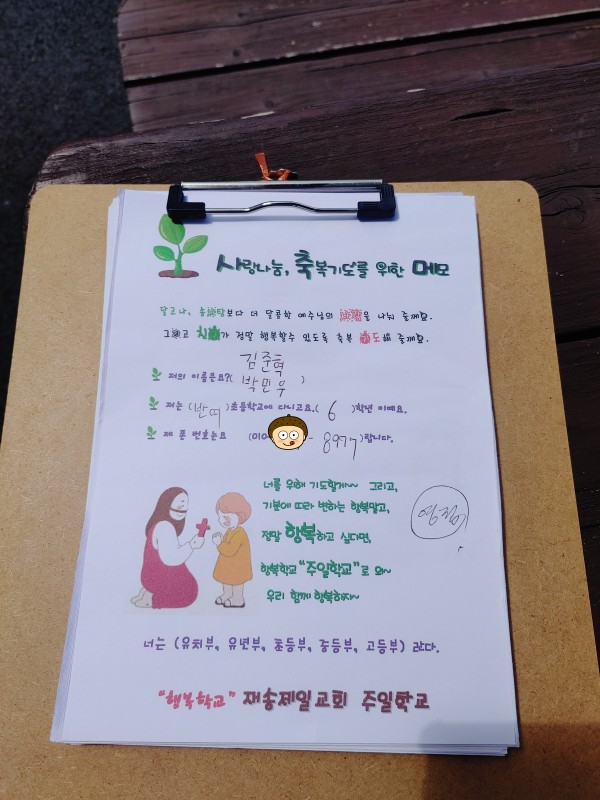 사랑나눔, 축복기도를 위한 메모
달고나, 솜사탕보다 더 달콤한 예수님의 을 나눠 줄께요.
그리고 가 정말 행복할수 있도록 축복 기도해 줄께요.
김준혁
저의 이름은요?( 박민우 )
저는 (반여)초등학교에 다니고요.( 6 )학년 이예요.
제 폰 번호는요 (010 - 8977)랍니다.
너를 위해 기도할게~~ 그리고,
기분에 따라 변하는 행복말고,
정말 행복하고 싶다면,
행복학교 "주일학교"로 와~
우리 함께 행복하자~
너는 (유치부, 유년부, 초등부, 중등부, 고등부) 란다.
"행복학교" 재송제일교회 주일학교